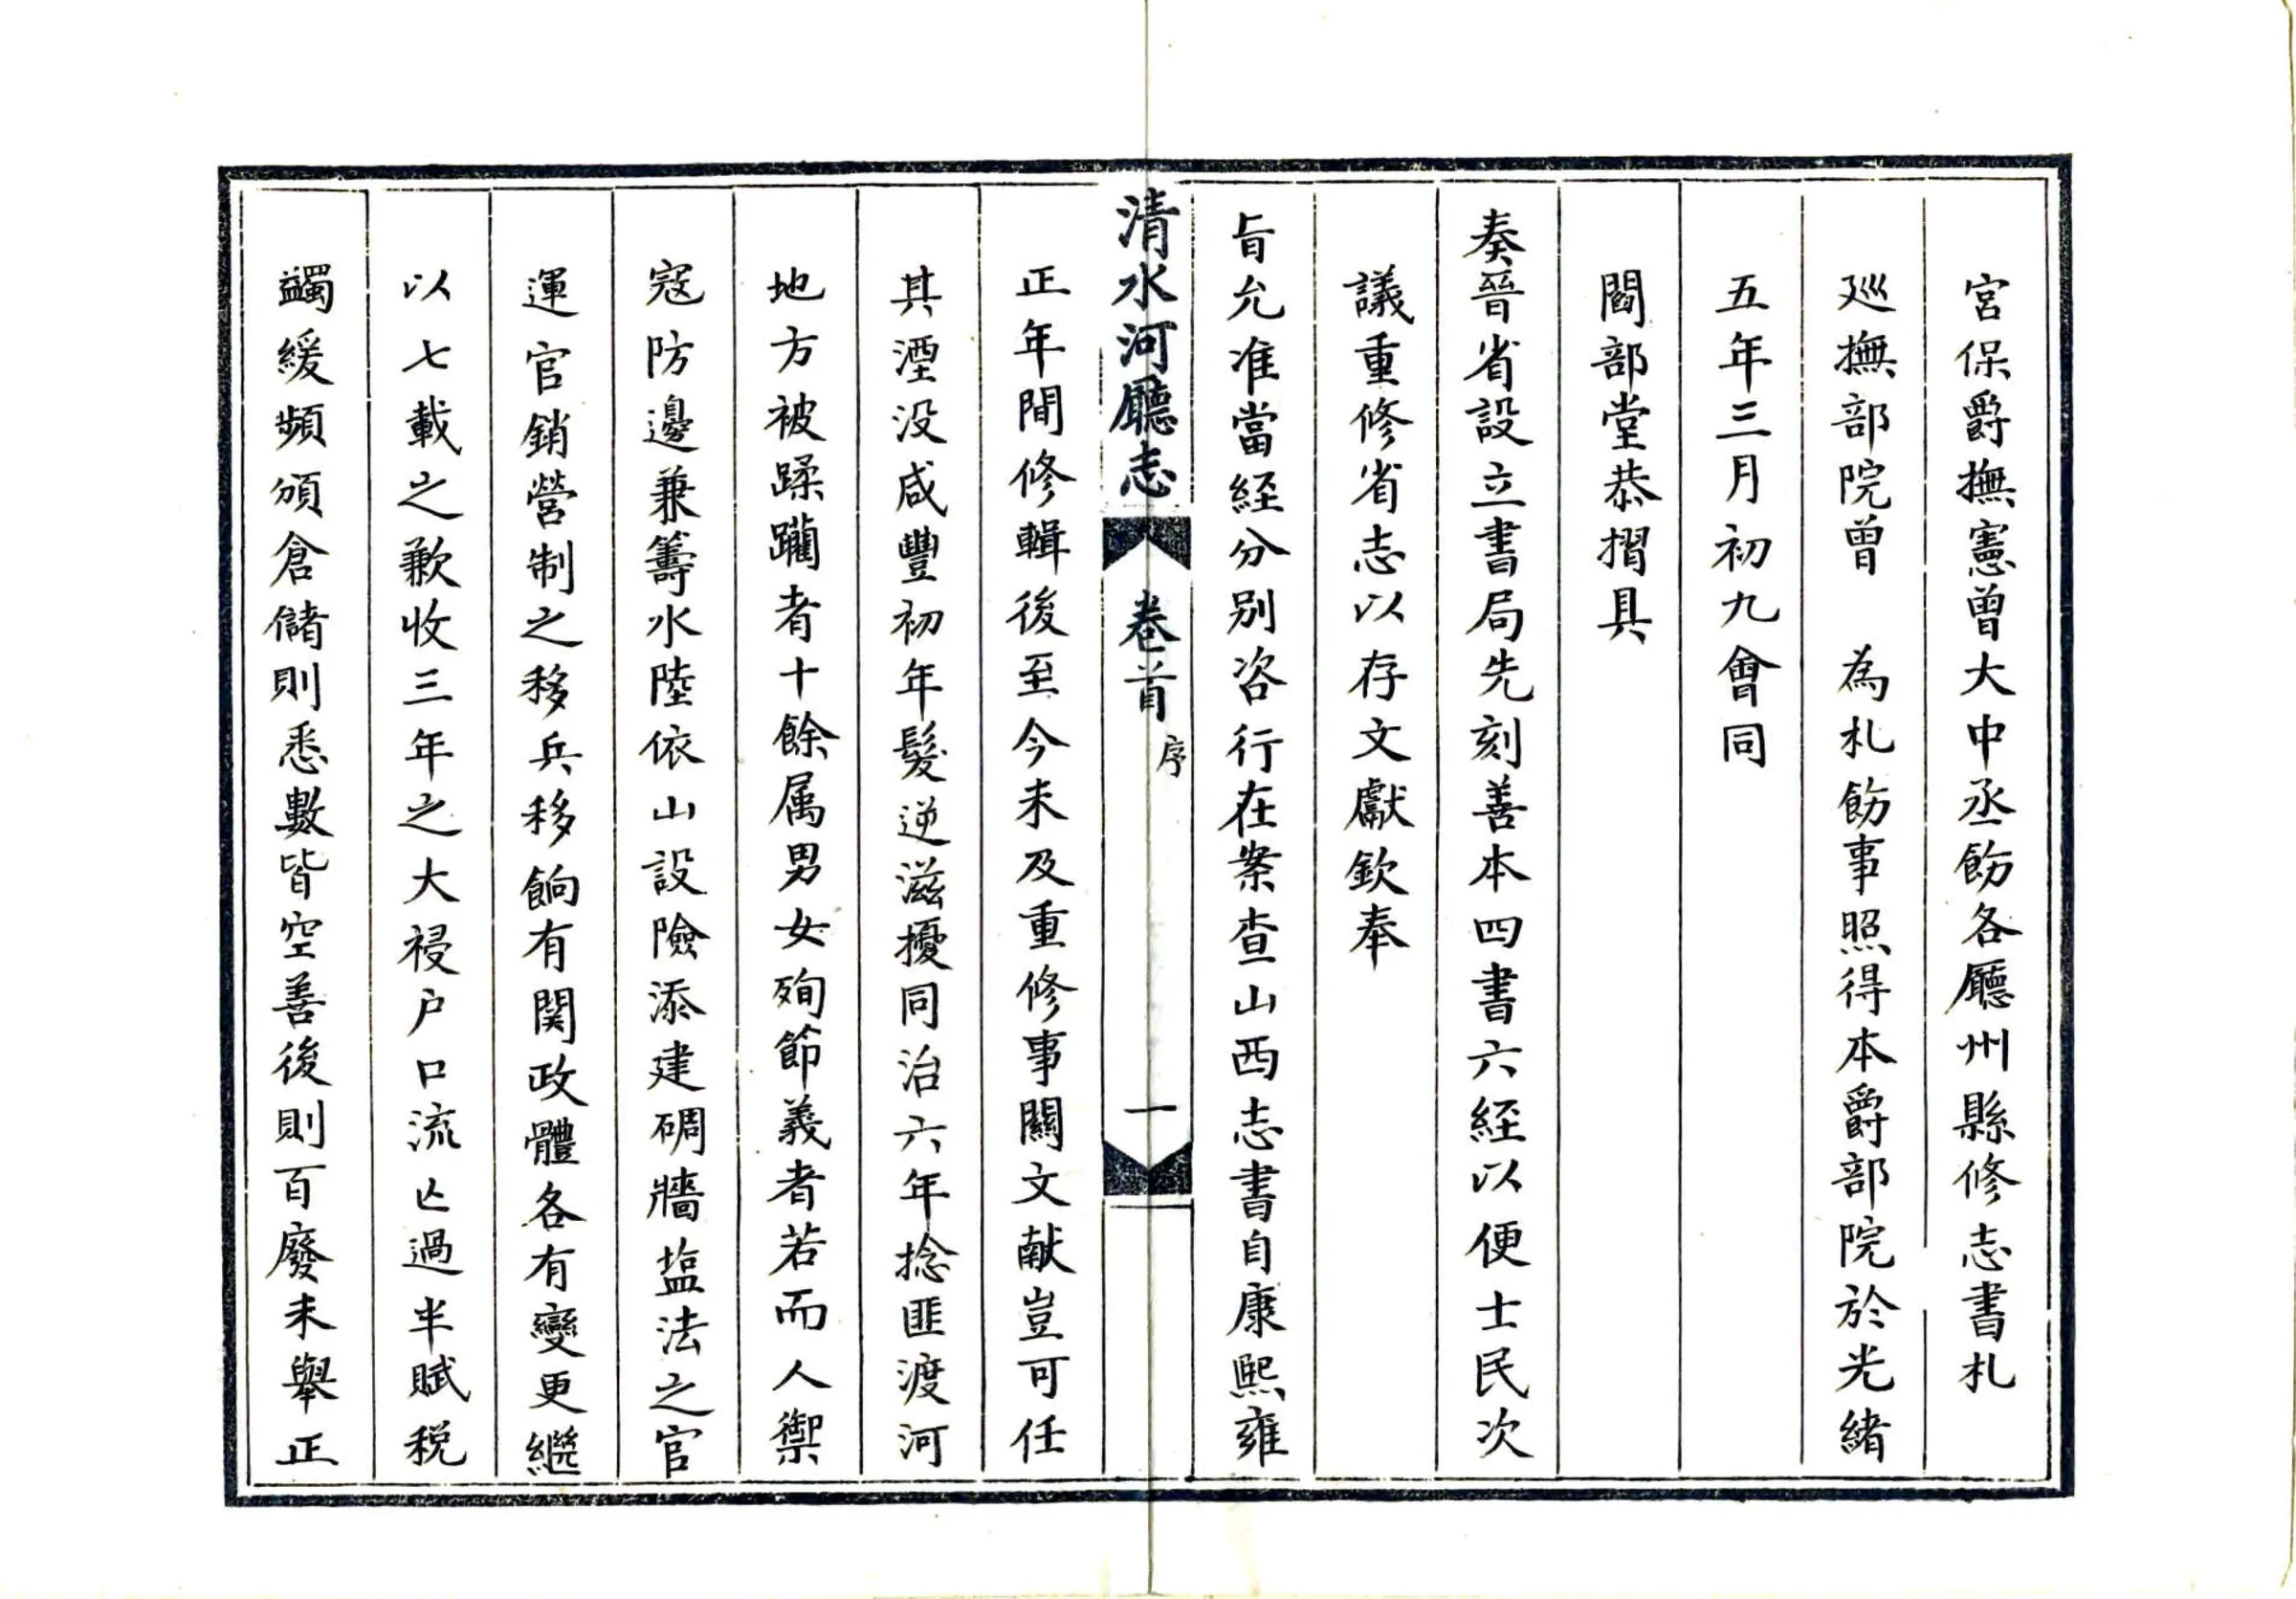 宮保爵撫憲曾大中丞飭各廳州縣修志書札
廵撫部院曾　為札飭事照得本爵部院於光緒
五年三月初九會同
閻部堂恭摺具
奏晉省設立書局先刻善本四書六経以便士民次
議重修省志以存文獻欽奉
旨允准當経分别咨行在案查山西志書自康熙雍
清水河廳志
卷首
序
一
正年間修輯後至今未及重修事關文献豈可任
其湮没咸豐初年髮逆滋擾同治六年捻匪渡河
地方被蹂躪者十餘属男女殉節義者若而人禦
寇防邊兼籌水陸依山設險添建碉牆塩法之官
運官銷營制之移兵移餉有関政體各有變更繼
以七載之歉收三年之大祲户口流亡過半賦税
蠲緩頻頒倉儲則悉數皆空善後則百廢未舉正